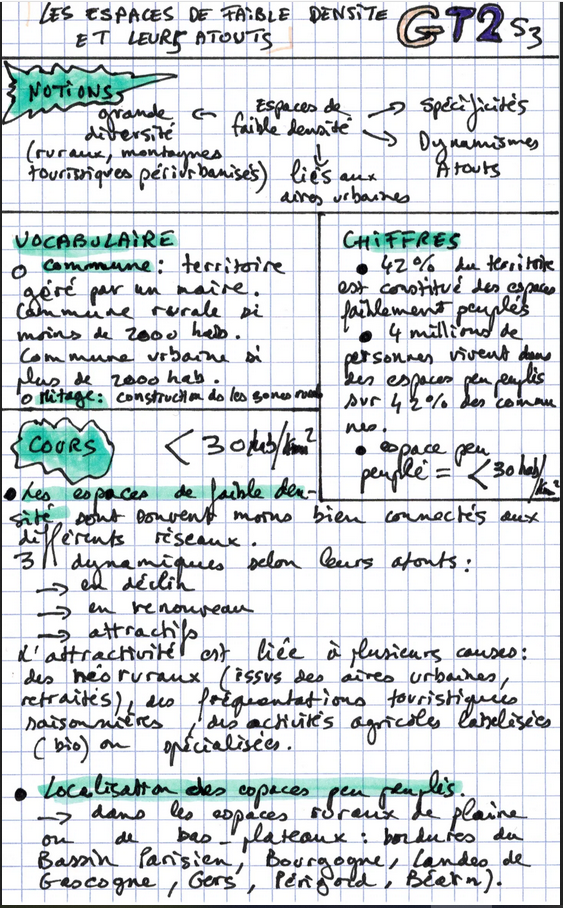 LES ESPACES DE FAIBLE DENSITE
ET LEURS ATOUTS
GT2 S3
NOTIONS
grande
diversité
(ruraux, montagnes
touristiques périurbanisés)
Espaces de
faible densité
liés aux
aires urbaines
Spécificités
Dynamismes
Atouts
VOCABULAIRE
o commune : territoire
géré par un maire.
Commune rurale si
moins de 2000 hab.
Commune urbaine si
plus de 2000 hab.
o Mitage : construction ds les zones rurales
CHIFFRES
• 42% du territoire
est constitué des espaces
faiblement peuplés
• 4 millions de
personnes vivent dans
des espaces peu peuplés
sur 42% des commu
nes.
• espace peu
peuplé = < 30 hab/km²
COURS
< 30 hab/km²
• Les espaces de faible den-
sité sont souvent moins bien connectés aux
différents réseaux.
3 dynamiques selon leurs atouts :
→ en déclin
→ en renouveau
→ attractifs
L'attractivité est liée à plusieurs causes :
des néoruraux (issus des aires urbaines,
retraités), des fréquentations touristiques
saisonnières, des activités agricoles labelisées
(bio) ou spécialisées.
• Localisation des espaces peu peuplés.
→ dans les espaces ruraux de plaine
ou de bas-plateaux : bordures du
Bassin Parisien, Bourgogne, Landes de
Gascogne, Gers, Périgord, Béarn).